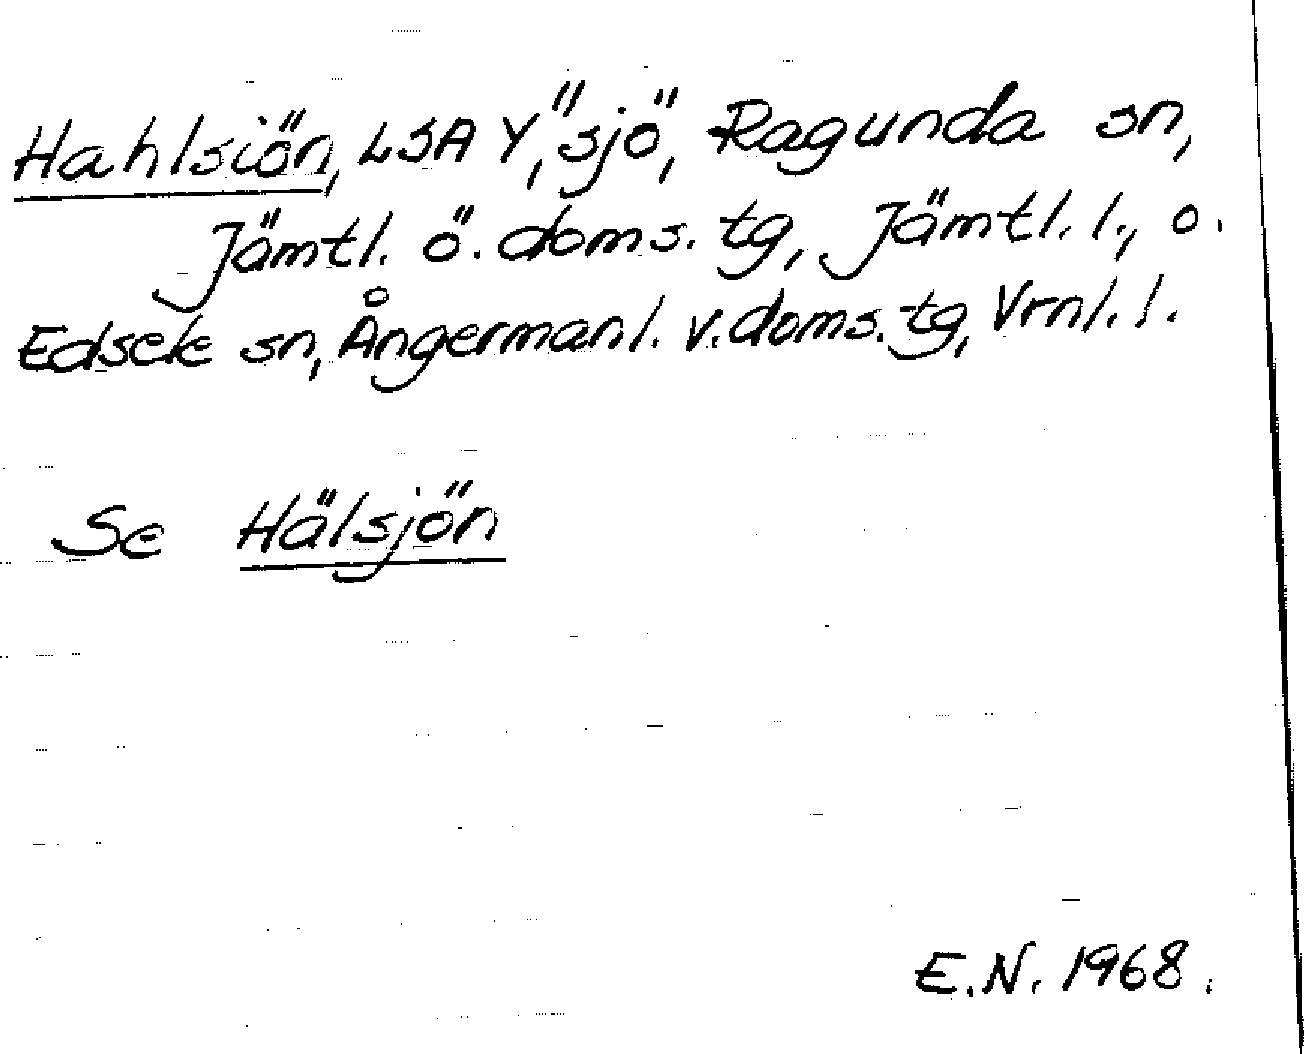 Hahlsiön, LSA Y, "sjö", Ragunda sn,
Jämtl. ö. doms. tg, Jämtl. l., o.
Edsele sn, Ångermanl. v. doms. tg, Vrnl. l.
Se Hälsjön
E.N. 1968.